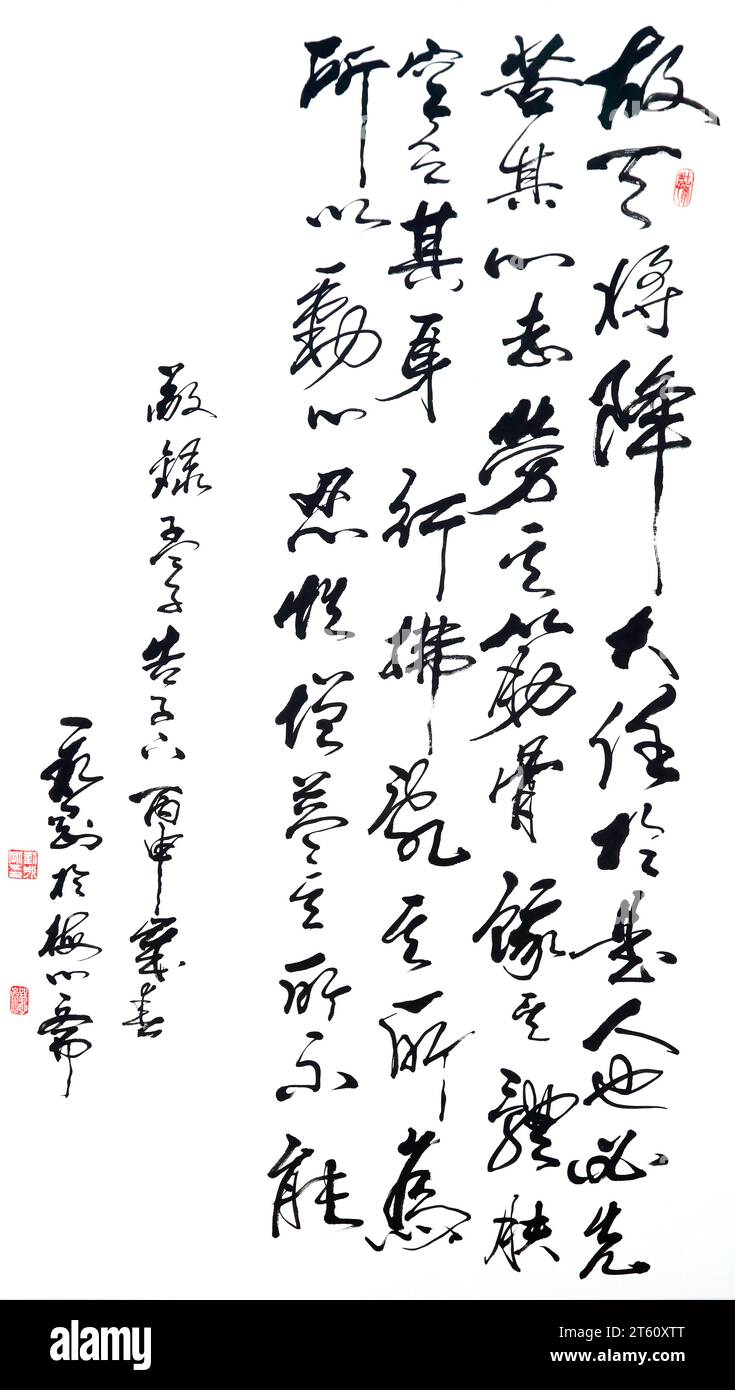 故天将降大任於是人也必先
苦其心志勞其筋骨餓其體膚
空乏其身行拂亂其所為
所以動心忍性增益其所不能
敬録孟子告子下丙申歲春
於梅心齋
alamy
Image ID: 2T60XTT
www.alamy.com